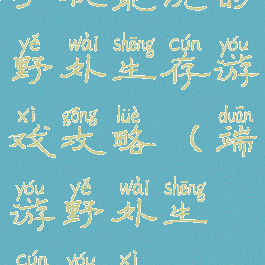 yě wài shēng cún yóu
野外生存游
xì gōng lüè duān
戏攻略(端
yóu yě wài shēng
游野外生
cún yóu xì